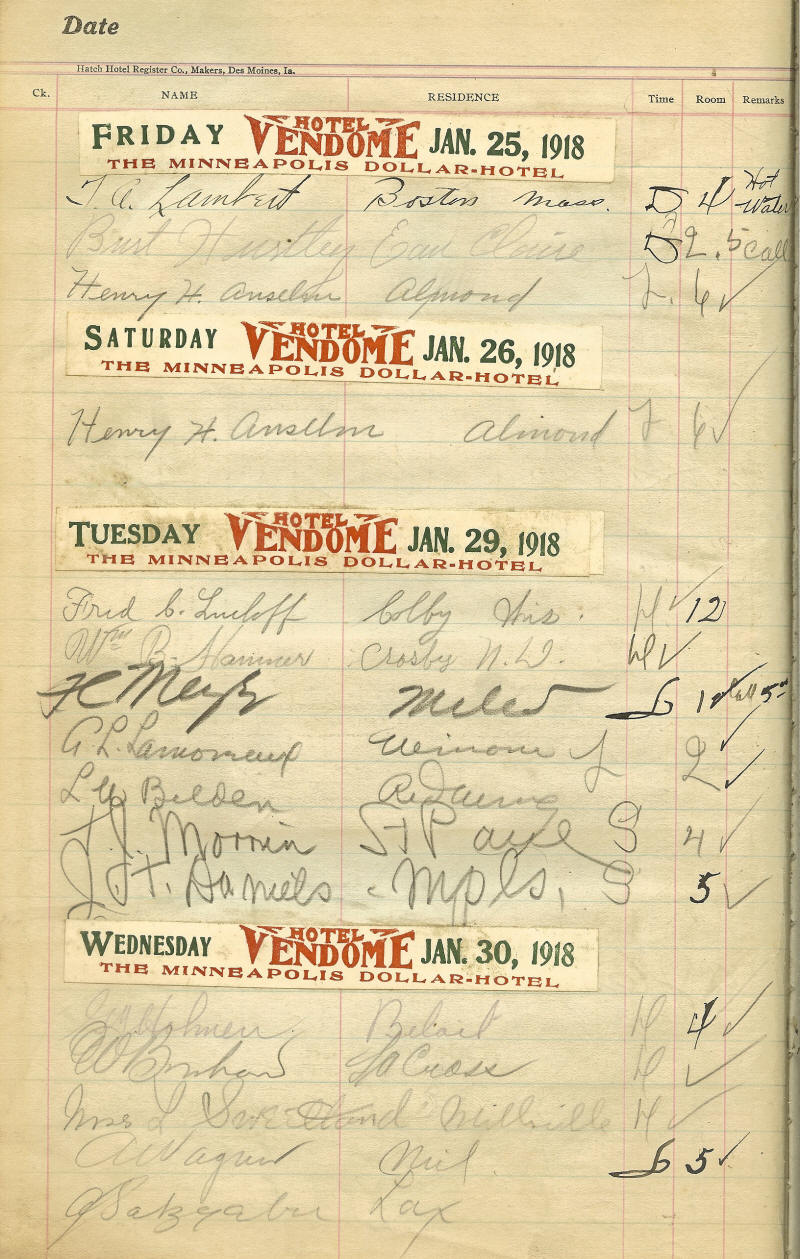 Date
Hatch Hotel Register Co., Makers, Des Moines, Ia.
Ck. NAME RESIDENCE Time Room Remarks
FRIDAY HOTEL VENDOME JAN. 25, 1918
THE MINNEAPOLIS DOLLAR-HOTEL
T. A. Lambert Boston Mass. D 4 Hot Water
Burt Huntley Eau Claire D 2. 5 Call
Henry H. Anselm Almond L. 6 ✓
SATURDAY HOTEL VENDOME JAN. 26, 1918
THE MINNEAPOLIS DOLLAR-HOTEL
Henry H. Anselm Almond 6 ✓
TUESDAY HOTEL VENDOME JAN. 29, 1918
THE MINNEAPOLIS DOLLAR-HOTEL
Fred C. Colby Wis. ✓ 12
Wm B. Hammer Crosby N.D. ✓
FC Meyer 12 ✓ Call 5
A. L. Lamoreux L 2 ✓
L Belden Red Wing ✓
Morrin St Paul S 4 ✓
J. H. Daniels Mpls, S 5 ✓
WEDNESDAY HOTEL VENDOME JAN. 30, 1918
THE MINNEAPOLIS DOLLAR-HOTEL
Holmen Beloit 4 ✓
La Cross ✓
Miss L Sweetland Millville ✓
A Wagner Mil. 5 ✓
Lax